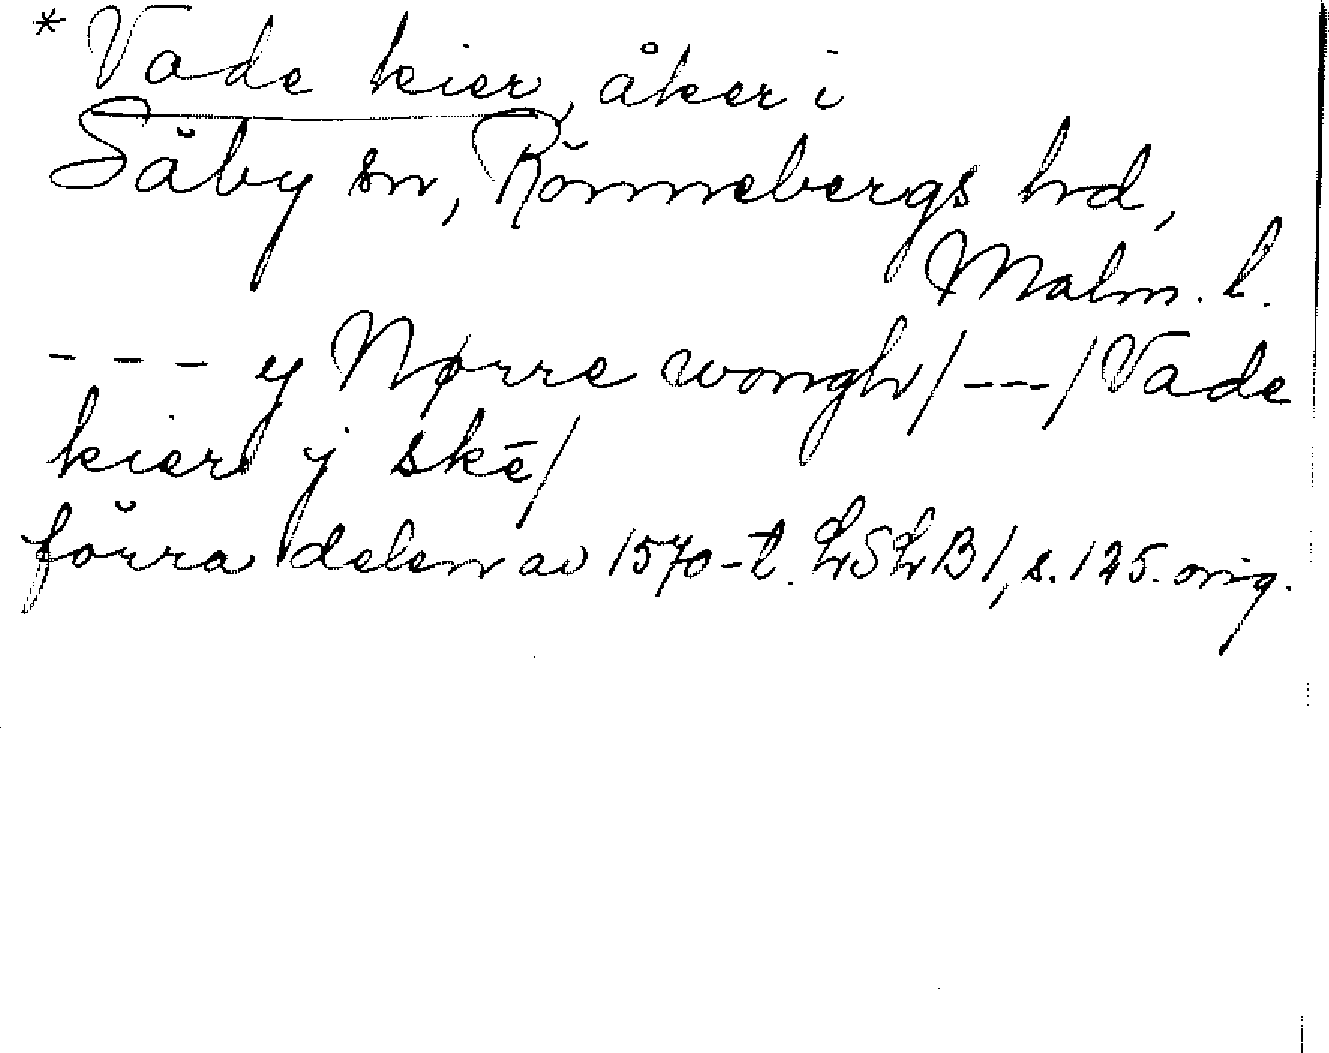 * Vade kier, åker i
Säby sn, Rönnebergs hd,
Malm. l.
--- y Nørre wongh/---/Vade
kier j skē/
förra delen av 1570-t. LSLB1, s. 125. orig.